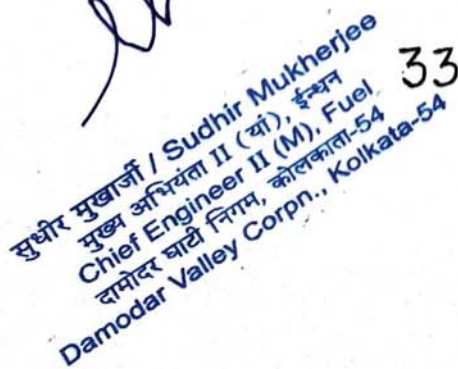 33
सुधीर मुखार्जी / Sudhir Mukherjee
मुख्य अभियंता II (यां), ईन्धन
Chief Engineer II (M), Fuel
दामोदर घाटी निगम, कोलकाता-54
Damodar Valley Corpn., Kolkata-54